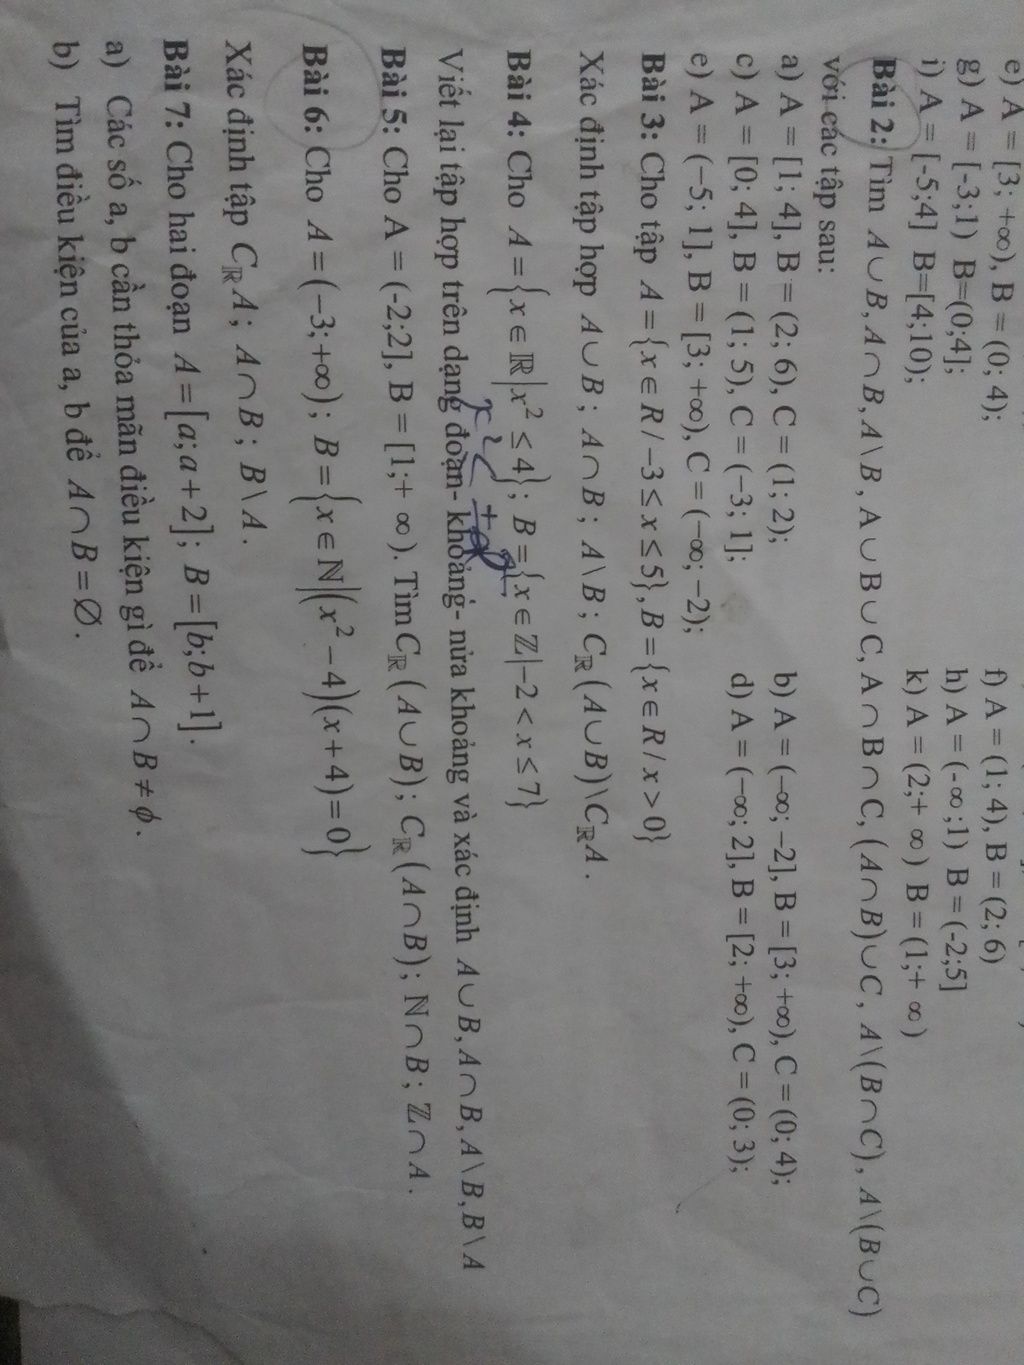 e) A = [3; +∞), B = (0; 4);
f) A = (1; 4), B = (2; 6)
g) A = [-3;1) B=(0;4];
h) A = (-∞;1) B = (-2;5]
i) A = [-5;4] B=[4;10);
k) A = (2;+ ∞) B = (1;+ ∞)
Bài 2: Tìm A∪B, A∩B, A\B, A∪B∪C, A∩B∩C, (A∩B)∪C, A\(B∩C), A\(B∪C)
với các tập sau:
a) A = [1; 4], B = (2; 6), C = (1; 2);
b) A = (−∞; −2], B = [3; +∞), C = (0; 4);
c) A = [0; 4], B = (1; 5), C = (−3; 1];
d) A = (−∞; 2], B = [2; +∞), C = (0; 3);
e) A = (−5; 1], B = [3; +∞), C = (−∞; −2);
Bài 3: Cho tập A = {x ∈ R / −3 ≤ x ≤ 5}, B = {x ∈ R / x > 0}
Xác định tập hợp A∪B; A∩B; A\B; Cℝ(A∪B)\CℝA.
Bài 4: Cho A = {x ∈ ℝ|x² ≤ 4}; B = {x ∈ ℤ|−2 < x ≤ 7}
Viết lại tập hợp trên dạng đoạn- khoảng- nửa khoảng và xác định A∪B, A∩B, A\B, B\A
Bài 5: Cho A = (-2;2], B = [1;+ ∞). Tìm Cℝ(A∪B); Cℝ(A∩B); ℕ∩B; ℤ∩A.
Bài 6: Cho A = (−3;+∞); B = {x ∈ ℕ|(x² − 4)(x + 4) = 0}
Xác định tập CℝA; A∩B; B\A.
Bài 7: Cho hai đoạn A = [a;a + 2]; B = [b;b + 1].
a) Các số a, b cần thỏa mãn điều kiện gì để A∩B ≠ ϕ.
b) Tìm điều kiện của a, b để A∩B = ∅.